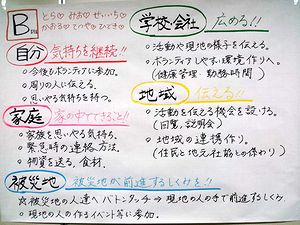 B班
とら♡ みお♡ せいいち♡
かおる♡ てつや♡ ひでき♡
自分 気持ちを継続!!
◦今後もボランティアに参加。
◦周りの人に伝える。
◦思いやる気持ちを持つ。
家庭 家の中でできること!!
◦家族を思いやる気持ち。
◦緊急時の連絡方法。
◦物資を送る。食材。
学校・会社 広める!!
◦活動や現地の様子を伝える。
◦ボランティアしやすい環境作りへ。
(健康管理・勤務時間)
地域 伝える!!
◦活動を伝える機会を設ける。
(回覧、説明会)
◦地域の連携作り。
(住民と地元社協との係わり)
被災地 被災地が前進するしくみを!!
☆被災地の人達へバトンタッチ→現地の人の手で前進するしくみ
◦現地の人の作るイベント等に参加。